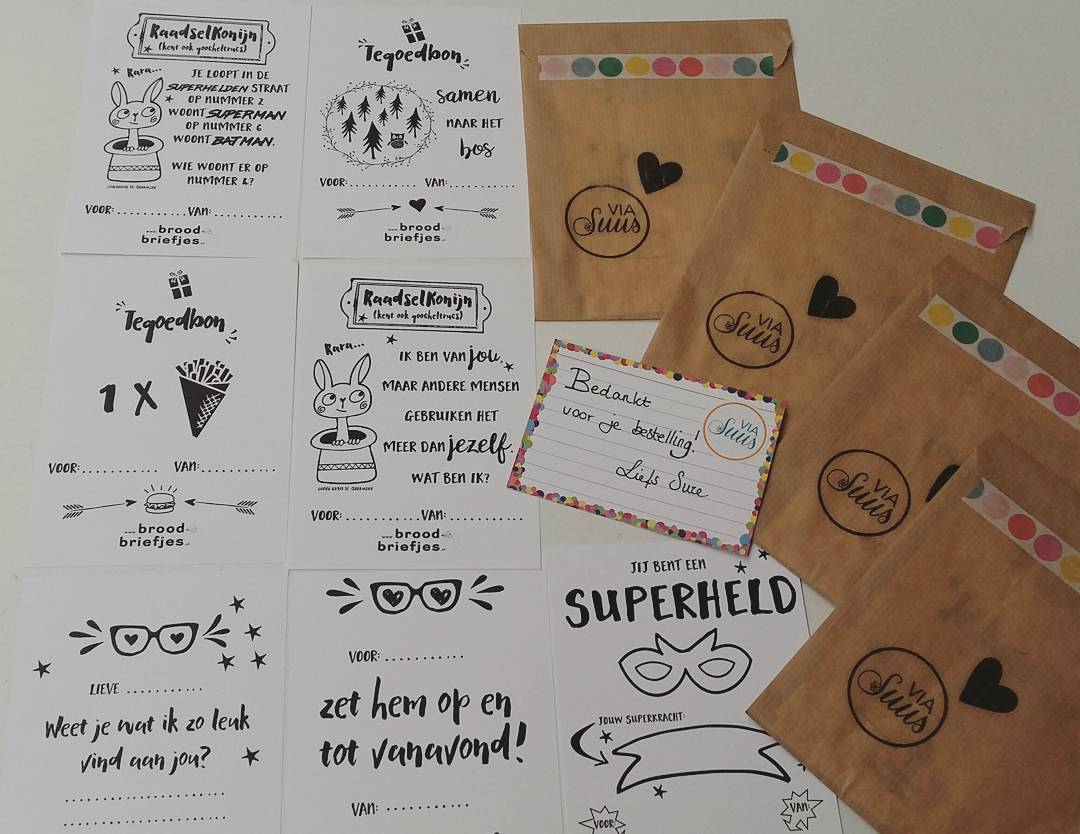 RaadselKonijn
(kent ook goocheltrucs)
Rara...
JE LOOPT IN DE
SUPERHELDEN STRAAT
OP NUMMER 2
WOONT SUPERMAN
OP NUMMER 6
WOONT BATMAN.
WIE WOONT ER OP
NUMMER
VOOR:........... VAN:..........
brood
briefjes
Tegoedbon
samen
NAAR HET
bos
VOOR:........... VAN:..........
brood
briefjes
Tegoedbon
1 X
VOOR:........... VAN:...........
brood
briefjes
RaadselKonijn
(kent ook goocheltrucs)
Rara...
IK BEN VAN jou,
MAAR ANDERE MENSEN
GEBRUIKEN HET
MEER DAN jezelf.
WAT BEN IK?
VOOR:........... VAN:...........
brood
briefjes
LIEVE ...........
Weet je wat ik zo leuk
vind aan jou?
VOOR:...........
zet hem op en
tot vanavond!
VAN: ............
JIJ BENT EEN
SUPERHELD
JOUW SUPERKRACHT:
VOOR
VAN:
Bedankt
voor je bestelling!
Liefs Suze
VIA
Suus
VIA
Suus
VIA
Suus
VIA
Suus
VIA
Suus